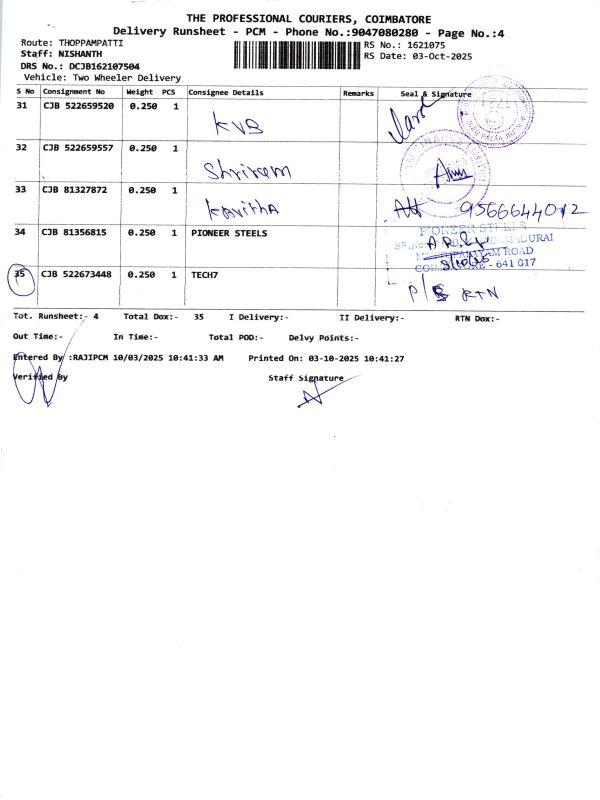 THE PROFESSIONAL COURIERS, COIMBATORE
Delivery Runsheet - PCM - Phone No.:9047080280 - Page No.:4
Route: THOPPAMPATTI
Staff: NISHANTH
RS No.: 1621075
RS Date: 03-Oct-2025
DRS No.: DCJB162107504
Vehicle: Two Wheeler Delivery
S No Consignment No Weight PCS Consignee Details Remarks Seal & Signature
31 CJB 522659520 0.250 1 KVB
32 CJB 522659557 0.250 1 Shriram
33 CJB 81327872 0.250 1 Kavitha 9566644012
34 CJB 81356815 0.250 1 PIONEER STEELS
PIONEER STEELS
MADURAI
ROAD
- 641 017
35 CJB 522673448 0.250 1 TECH7 RTN
Tot. Runsheet:- 4 Total Dox:- 35 I Delivery:- II Delivery:- RTN Dox:-
Out Time:- In Time:- Total POD:- Delvy Points:-
Entered By :RAJIPCM 10/03/2025 10:41:33 AM Printed On: 03-10-2025 10:41:27
Verified By Staff Signature